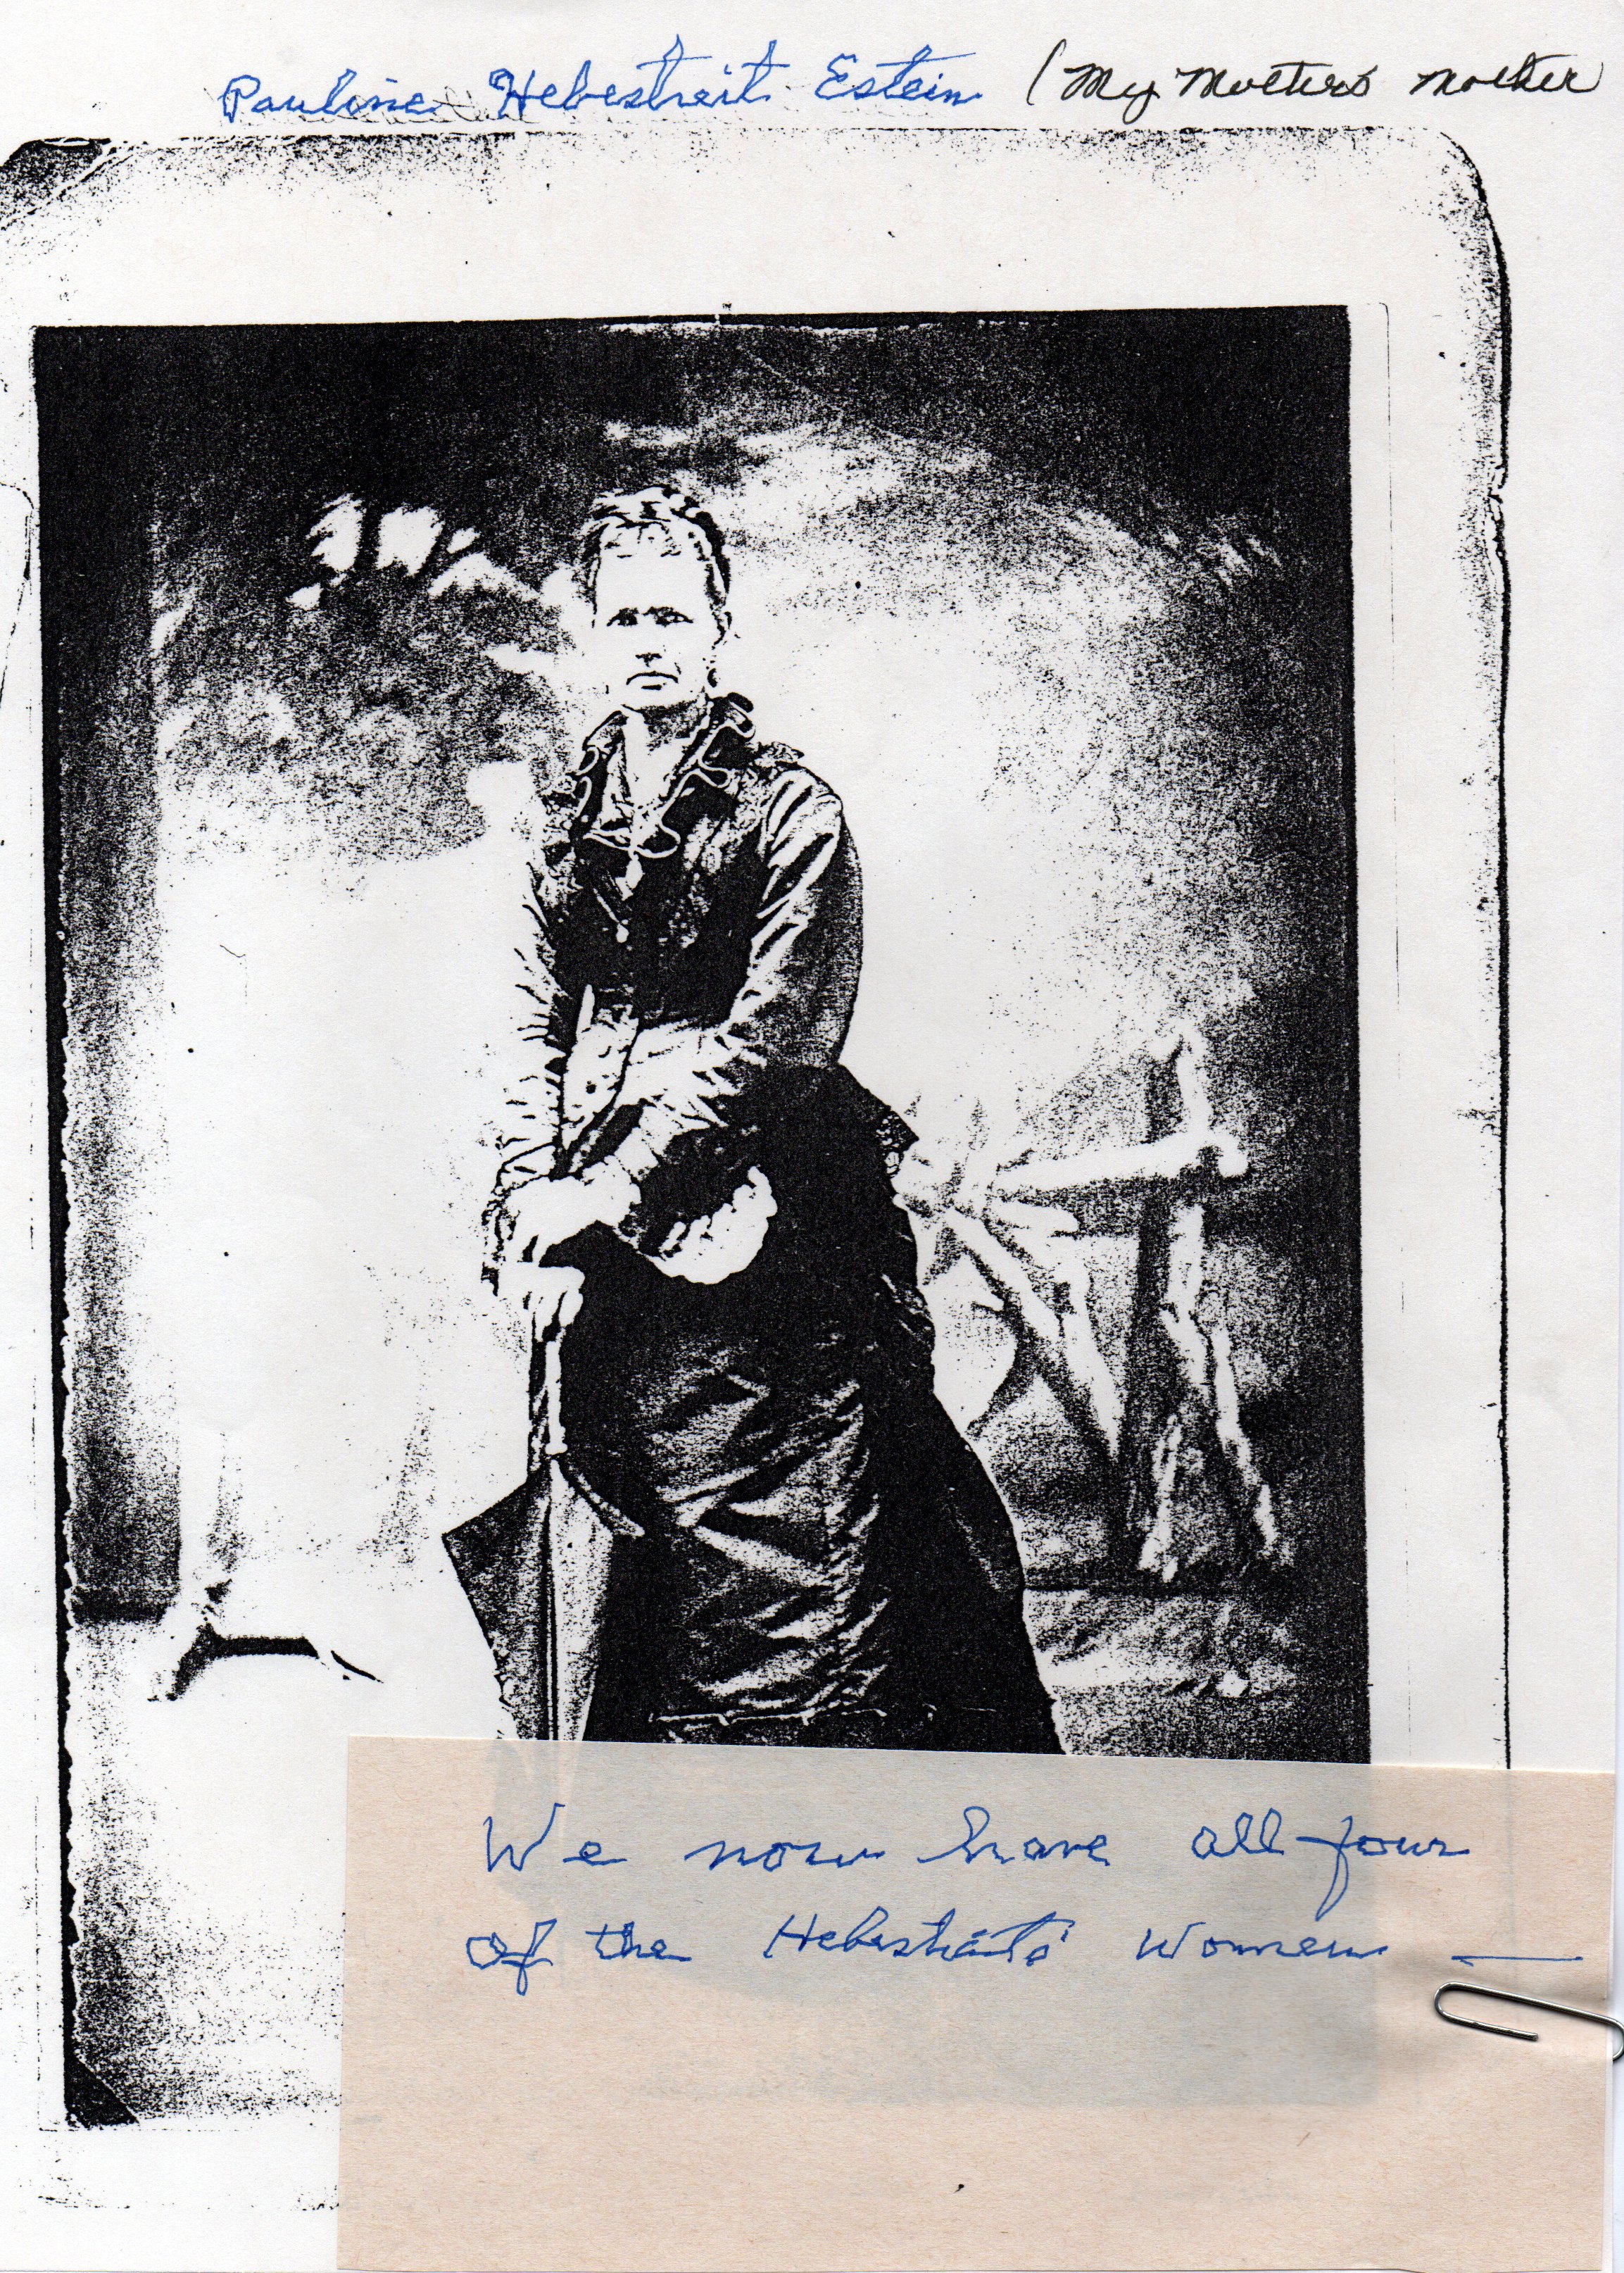 Pauline Hebestreit Estein (My Mother's Mother
We now have all four
of the Hebestreits' Women —